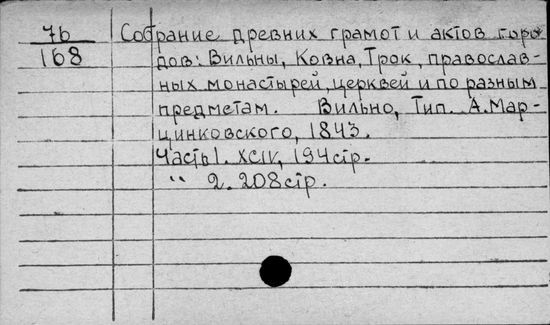 76 Собрание древних грамот и актов горо
168 дов: Вильны, Ковна, Трок, православ-
ных монастырей, церквей и по разным
предметам. Вильно, Тип. А. Мар-
цинковского, 1843.
Часть 1. XCIV, 194 стр.
" 2. 208 стр.